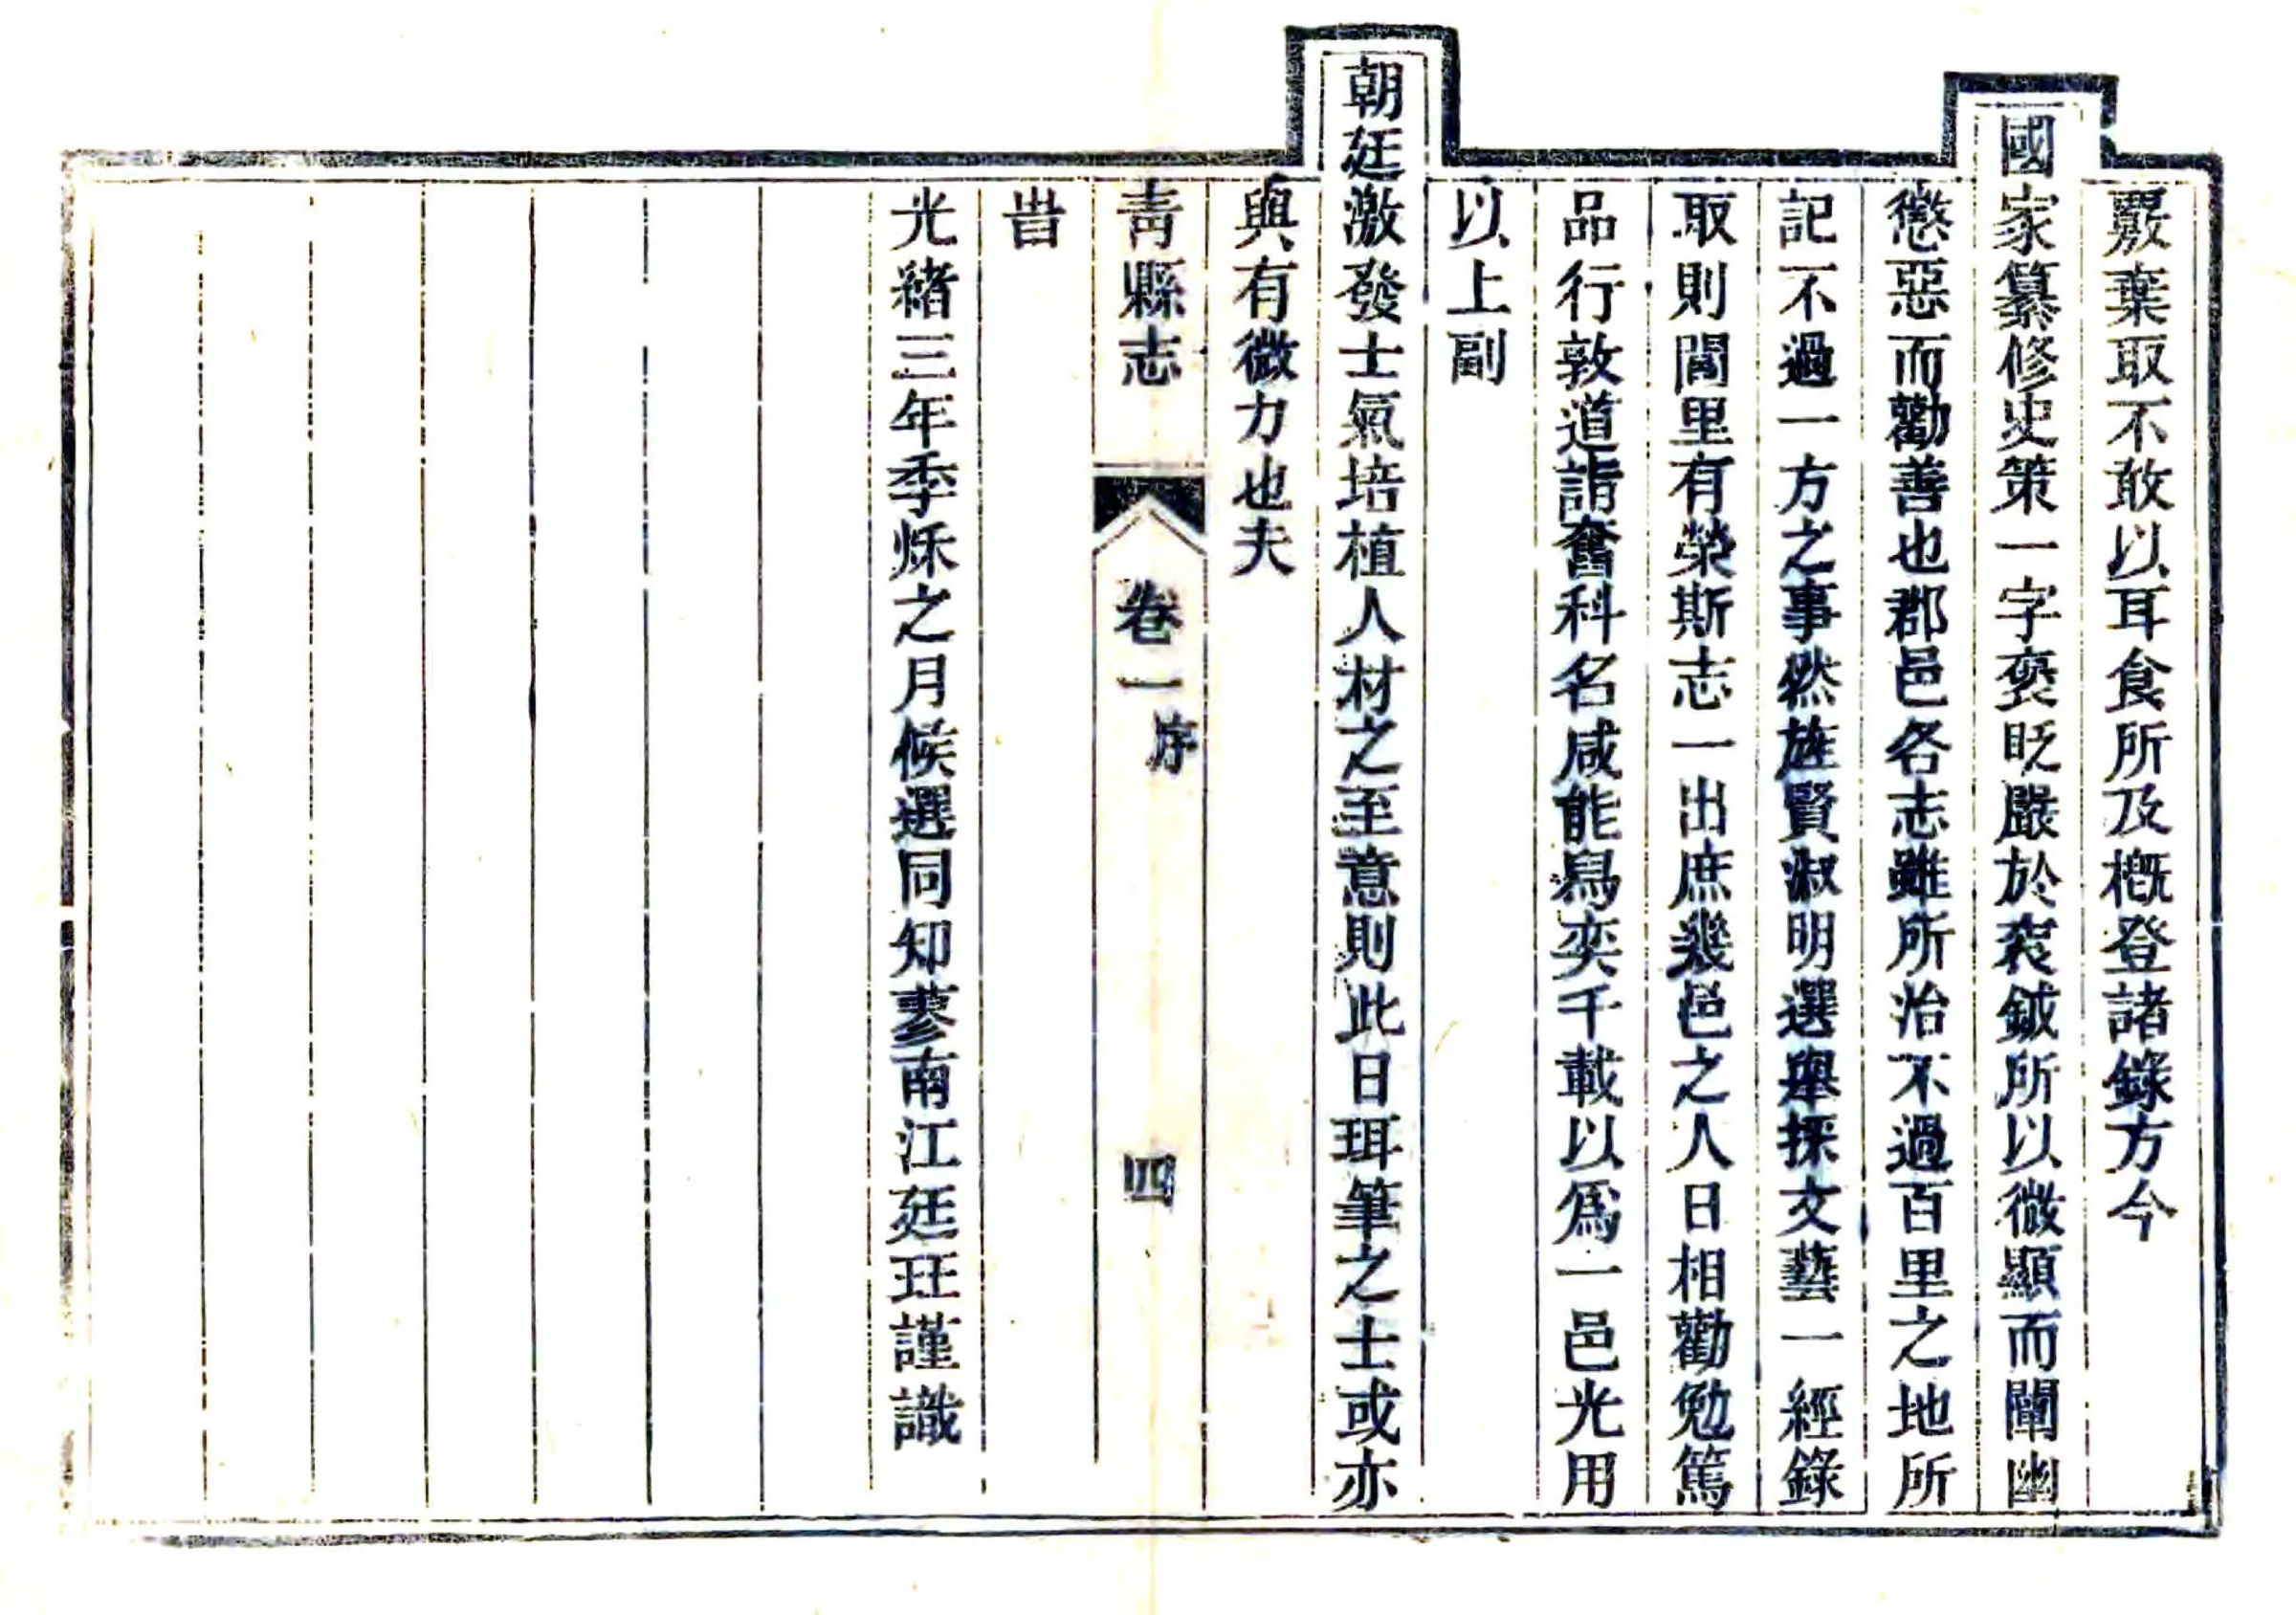 覈棄取不敢以耳食所及槪登諸錄方今
國家纂修史策一字褒貶嚴於袞鉞所以微顯而闡幽
懲惡而勸善也郡邑各志雖所治不過百里之地所
記不過一方之事然旌賢淑明選舉採文藝一經錄
取則閭里有榮斯志一出庶幾邑之人日相勸勉篤
品行敦道誼奮科名咸能爲奕千載以爲一邑光用
以上副
朝廷激發士氣培植人材之至意則此日珥筆之士或亦
與有微力也夫
靑縣志 卷一 序 四
旹
光緒三年季秌之月候選同知蓼南江廷玨謹識